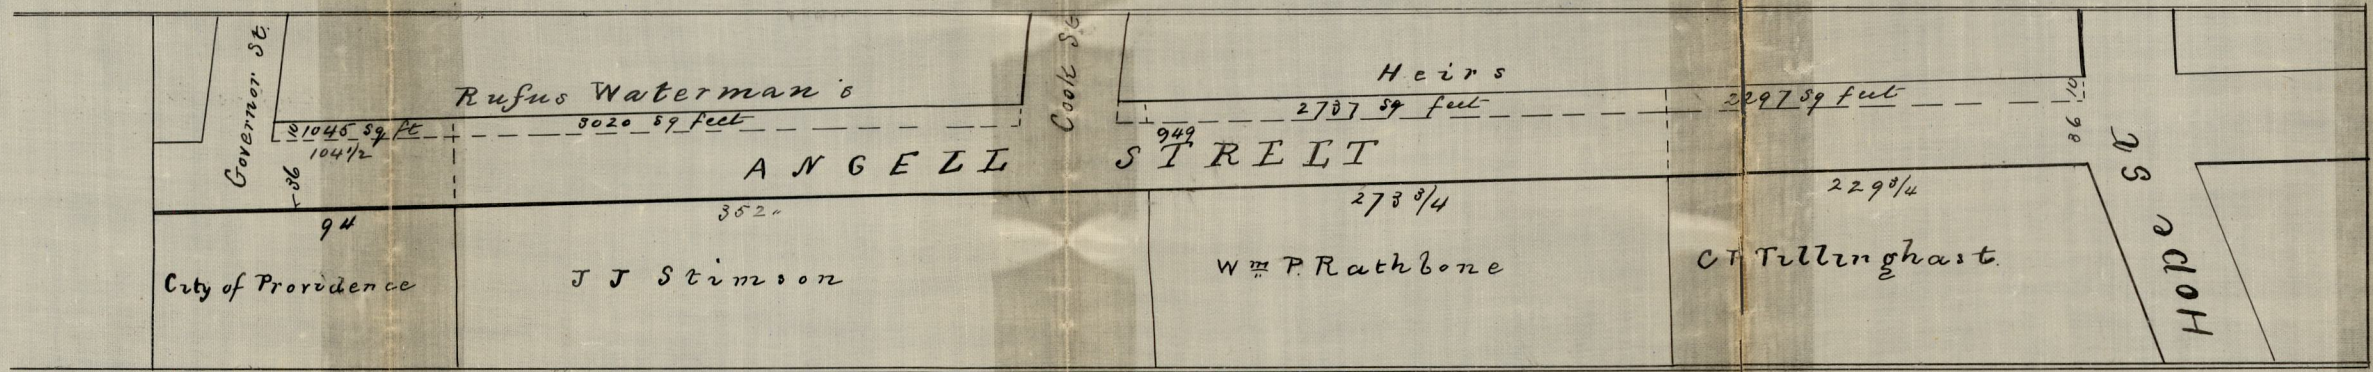 Governor St.
Cook St
Rufus Waterman's Heirs
10 1045 sq ft
104 1/2
3020 sq feet
949
2737 sq feet
2297 sq feet
10
36
36
ANGELL STREET
94
352
273 3/4
229 3/4
City of Providence
J J Stimson
Wm P. Rathbone
C T Tillinghast.
Hope St